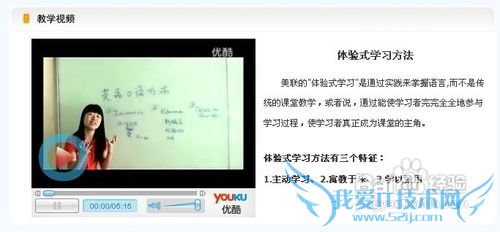 教学视频
优酷
英语口语方法
体验式学习方法
美联的"体验式学习"是通过实践来掌握语言,而不是传
统的课堂教学，或者说，通过能使学习者完完全全地参与
学习过程，使学习者真正成为课堂的主角。
体验式学习方法有三个特征：
1.主动学习、2.寓教于乐、3.学以致用
00:00/05:15
YOUKU
优酷
Baidu经验
我爱IT技术网
www.52ij.com